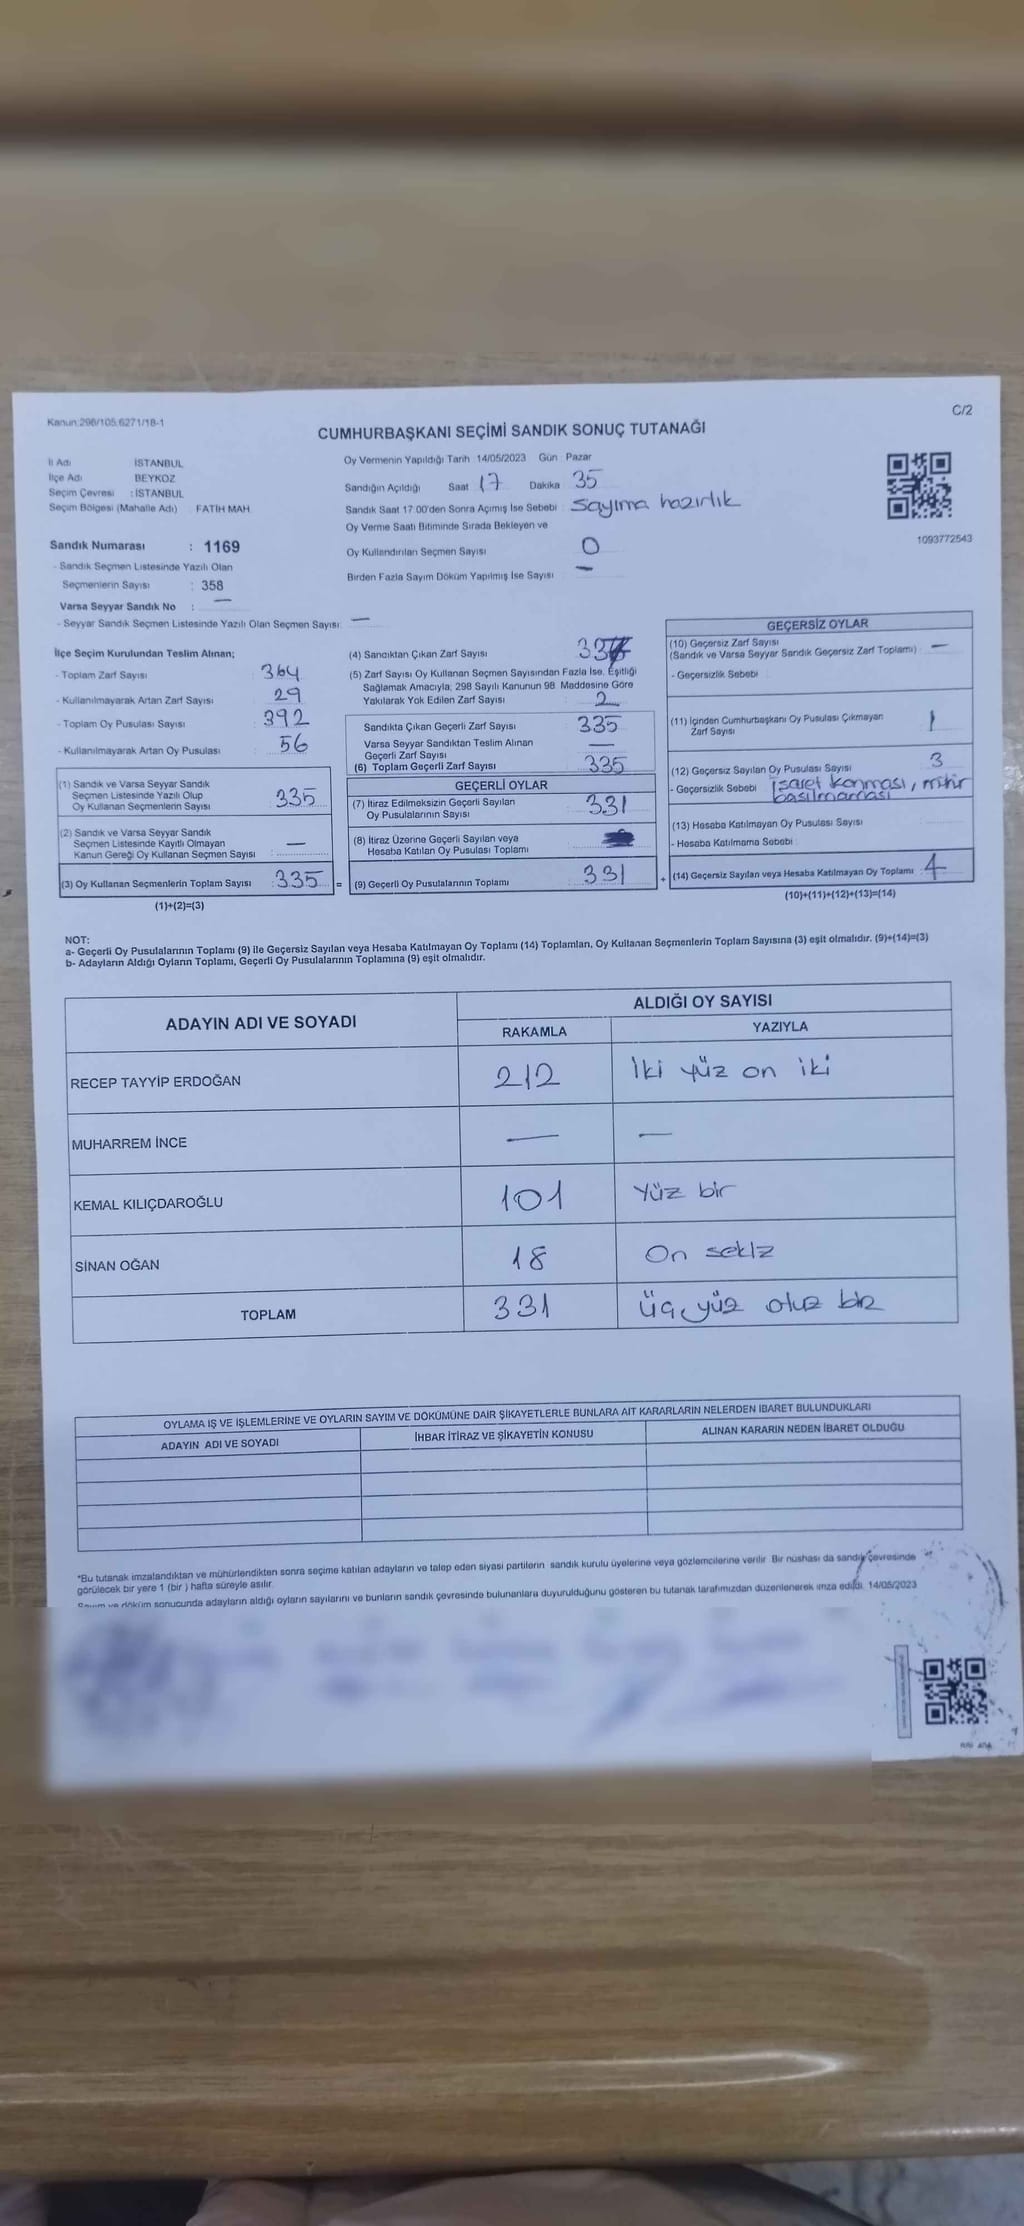 Kanun:298/105.6271/18-1
C/2
CUMHURBAŞKANI SEÇİMİ SANDIK SONUÇ TUTANAĞI
İl Adı İSTANBUL
İlçe Adı BEYKOZ
Seçim Çevresi : İSTANBUL
Seçim Bölgesi (Mahalle Adı) FATİH MAH
Sandık Numarası : 1169
- Sandık Seçmen Listesinde Yazılı Olan
Seçmenlerin Sayısı : 358
Varsa Seyyar Sandık No : —
- Seyyar Sandık Seçmen Listesinde Yazılı Olan Seçmen Sayısı: —
Oy Vermenin Yapıldığı Tarih 14/05/2023 Gün Pazar
Sandığın Açıldığı Saat 17 Dakika 35
Sandık Saat 17:00'den Sonra Açımış İse Sebebi : sayıma hazırlık
Oy Verme Saati Bitiminde Sırada Bekleyen ve
Oy Kullandırılan Seçmen Sayısı 0
Birden Fazla Sayım Döküm Yapılmış İse Sayısı —
1093772543
İlçe Seçim Kurulundan Teslim Alınan;
- Toplam Zarf Sayısı 364
- Kullanılmayarak Artan Zarf Sayısı 29
- Toplam Oy Pusulası Sayısı 392
- Kullanılmayarak Artan Oy Pusulası 56
(1) Sandık ve Varsa Seyyar Sandık
Seçmen Listesinde Yazılı Olup
Oy Kullanan Seçmenlerin Sayısı 335
(2) Sandık ve Varsa Seyyar Sandık
Seçmen Listesinde Kayıtlı Olmayan
Kanun Gereği Oy Kullanan Seçmen Sayısı —
(3) Oy Kullanan Seçmenlerin Toplam Sayısı : 335 =
(1)+(2)=(3)
(4) Sandıktan Çıkan Zarf Sayısı
(5) Zarf Sayısı Oy Kullanan Seçmen Sayısından Fazla İse, Eşitliği
Sağlamak Amacıyla, 298 Sayılı Kanunun 98. Maddesine Göre
Yakılarak Yok Edilen Zarf Sayısı 2
Sandıkta Çıkan Geçerli Zarf Sayısı 335
Varsa Seyyar Sandıktan Teslim Alınan
Geçerli Zarf Sayısı —
(6) Toplam Geçerli Zarf Sayısı 335
GEÇERLİ OYLAR
(7) İtiraz Edilmeksizin Geçerli Sayılan
Oy Pusulalarının Sayısı 331
(8) İtiraz Üzerine Geçerli Sayılan veya
Hesaba Katılan Oy Pusulası Toplamı
(9) Geçerli Oy Pusulalarının Toplamı 331 +
GEÇERSİZ OYLAR
(10) Geçersiz Zarf Sayısı
(Sandık ve Varsa Seyyar Sandık Geçersiz Zarf Toplamı) : —
- Geçersizlik Sebebi
(11) İçinden Cumhurbaşkanı Oy Pusulası Çıkmayan
Zarf Sayısı 1
(12) Geçersiz Sayılan Oy Pusulası Sayısı 3
- Geçersizlik Sebebi İşaret konması, mühür
basılmaması
(13) Hesaba Katılmayan Oy Pusulası Sayısı
- Hesaba Katılmama Sebebi
(14) Geçersiz Sayılan veya Hesaba Katılmayan Oy Toplamı : 4
(10)+(11)+(12)+(13)=(14)
NOT:
a- Geçerli Oy Pusulalarının Toplamı (9) ile Geçersiz Sayılan veya Hesaba Katılmayan Oy Toplamı (14) Toplamları, Oy Kullanan Seçmenlerin Toplam Sayısına (3) eşit olmalıdır. (9)+(14)=(3)
b- Adayların Aldığı Oyların Toplamı, Geçerli Oy Pusulalarının Toplamına (9) eşit olmalıdır.
ADAYIN ADI VE SOYADI
ALDIĞI OY SAYISI
RAKAMLA YAZIYLA
RECEP TAYYİP ERDOĞAN 212 İki yüz on iki
MUHARREM İNCE — —
KEMAL KILIÇDAROĞLU 101 Yüz bir
SİNAN OĞAN 18 On sekiz
TOPLAM 331 Üç yüz otuz bir
OYLAMA İŞ VE İŞLEMLERİNE VE OYLARIN SAYIM VE DÖKÜMÜNE DAİR ŞİKAYETLERLE BUNLARA AİT KARARLARIN NELERDEN İBARET BULUNDUKLARI
ADAYIN ADI VE SOYADI İHBAR İTİRAZ VE ŞİKAYETİN KONUSU ALINAN KARARIN NEDEN İBARET OLDUĞU
*Bu tutanak imzalandıktan ve mühürlendikten sonra seçime katılan adayların ve talep eden siyasi partilerin sandık kurulu üyelerine veya gözlemcilerine verilir. Bir nüshası da sandık çevresinde
görülecek bir yere 1 (bir ) hafta süreyle asılır.
Sayım ve döküm sonucunda adayların aldığı oyların sayılarını ve bunların sandık çevresinde bulunanlara duyurulduğunu gösteren bu tutanak tarafımızdan düzenlenerek imza edildi. 14/05/2023